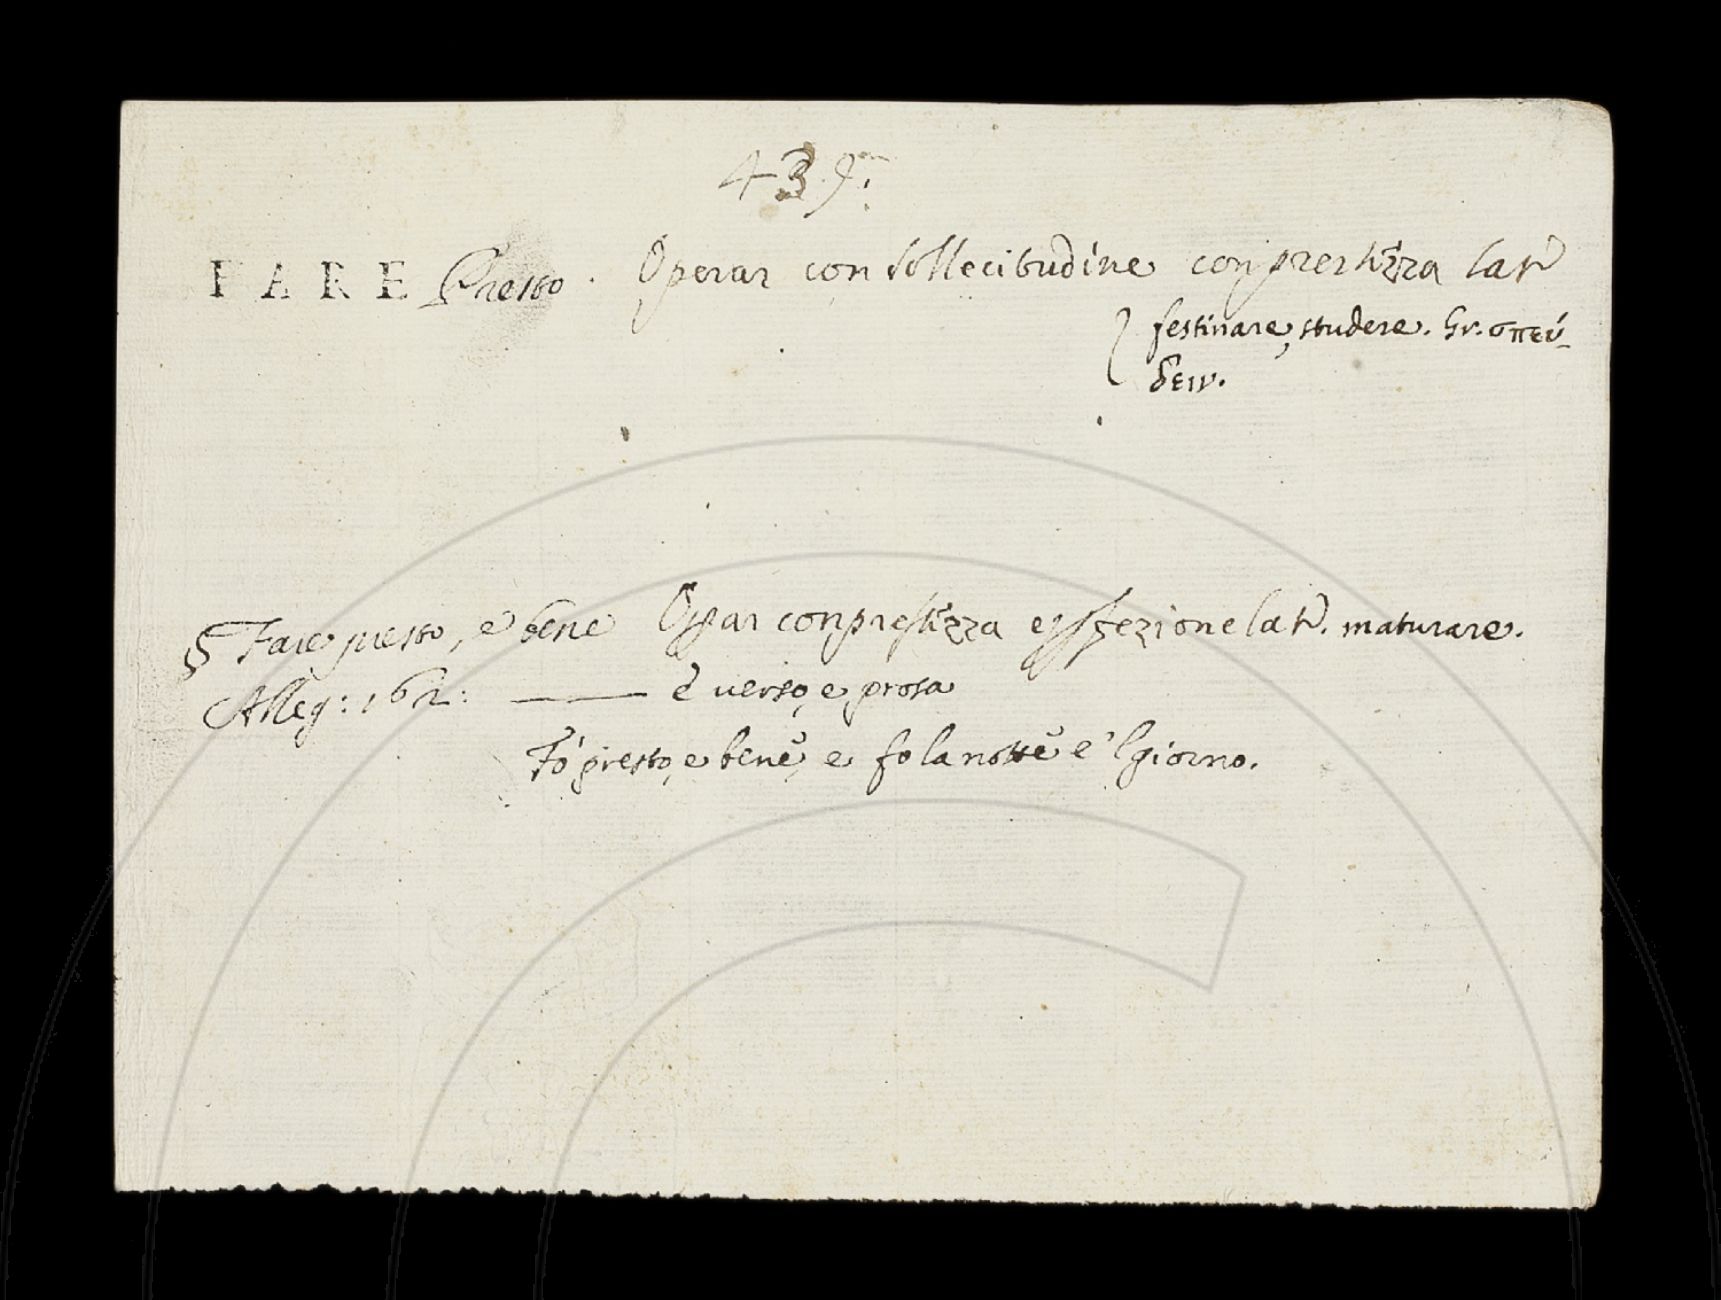 439.
FARE Presto. Operar con sollecitudine con prestezza lat.
festinare, studere. Gr. σπεύ-
δειν.
§ Fare presto, e bene Opar con prestezza e pfezione lat. maturare.
Alleg: 162: —— e verso, e prosa
Fò presto, e bene, e fo la notte e 'l giorno.